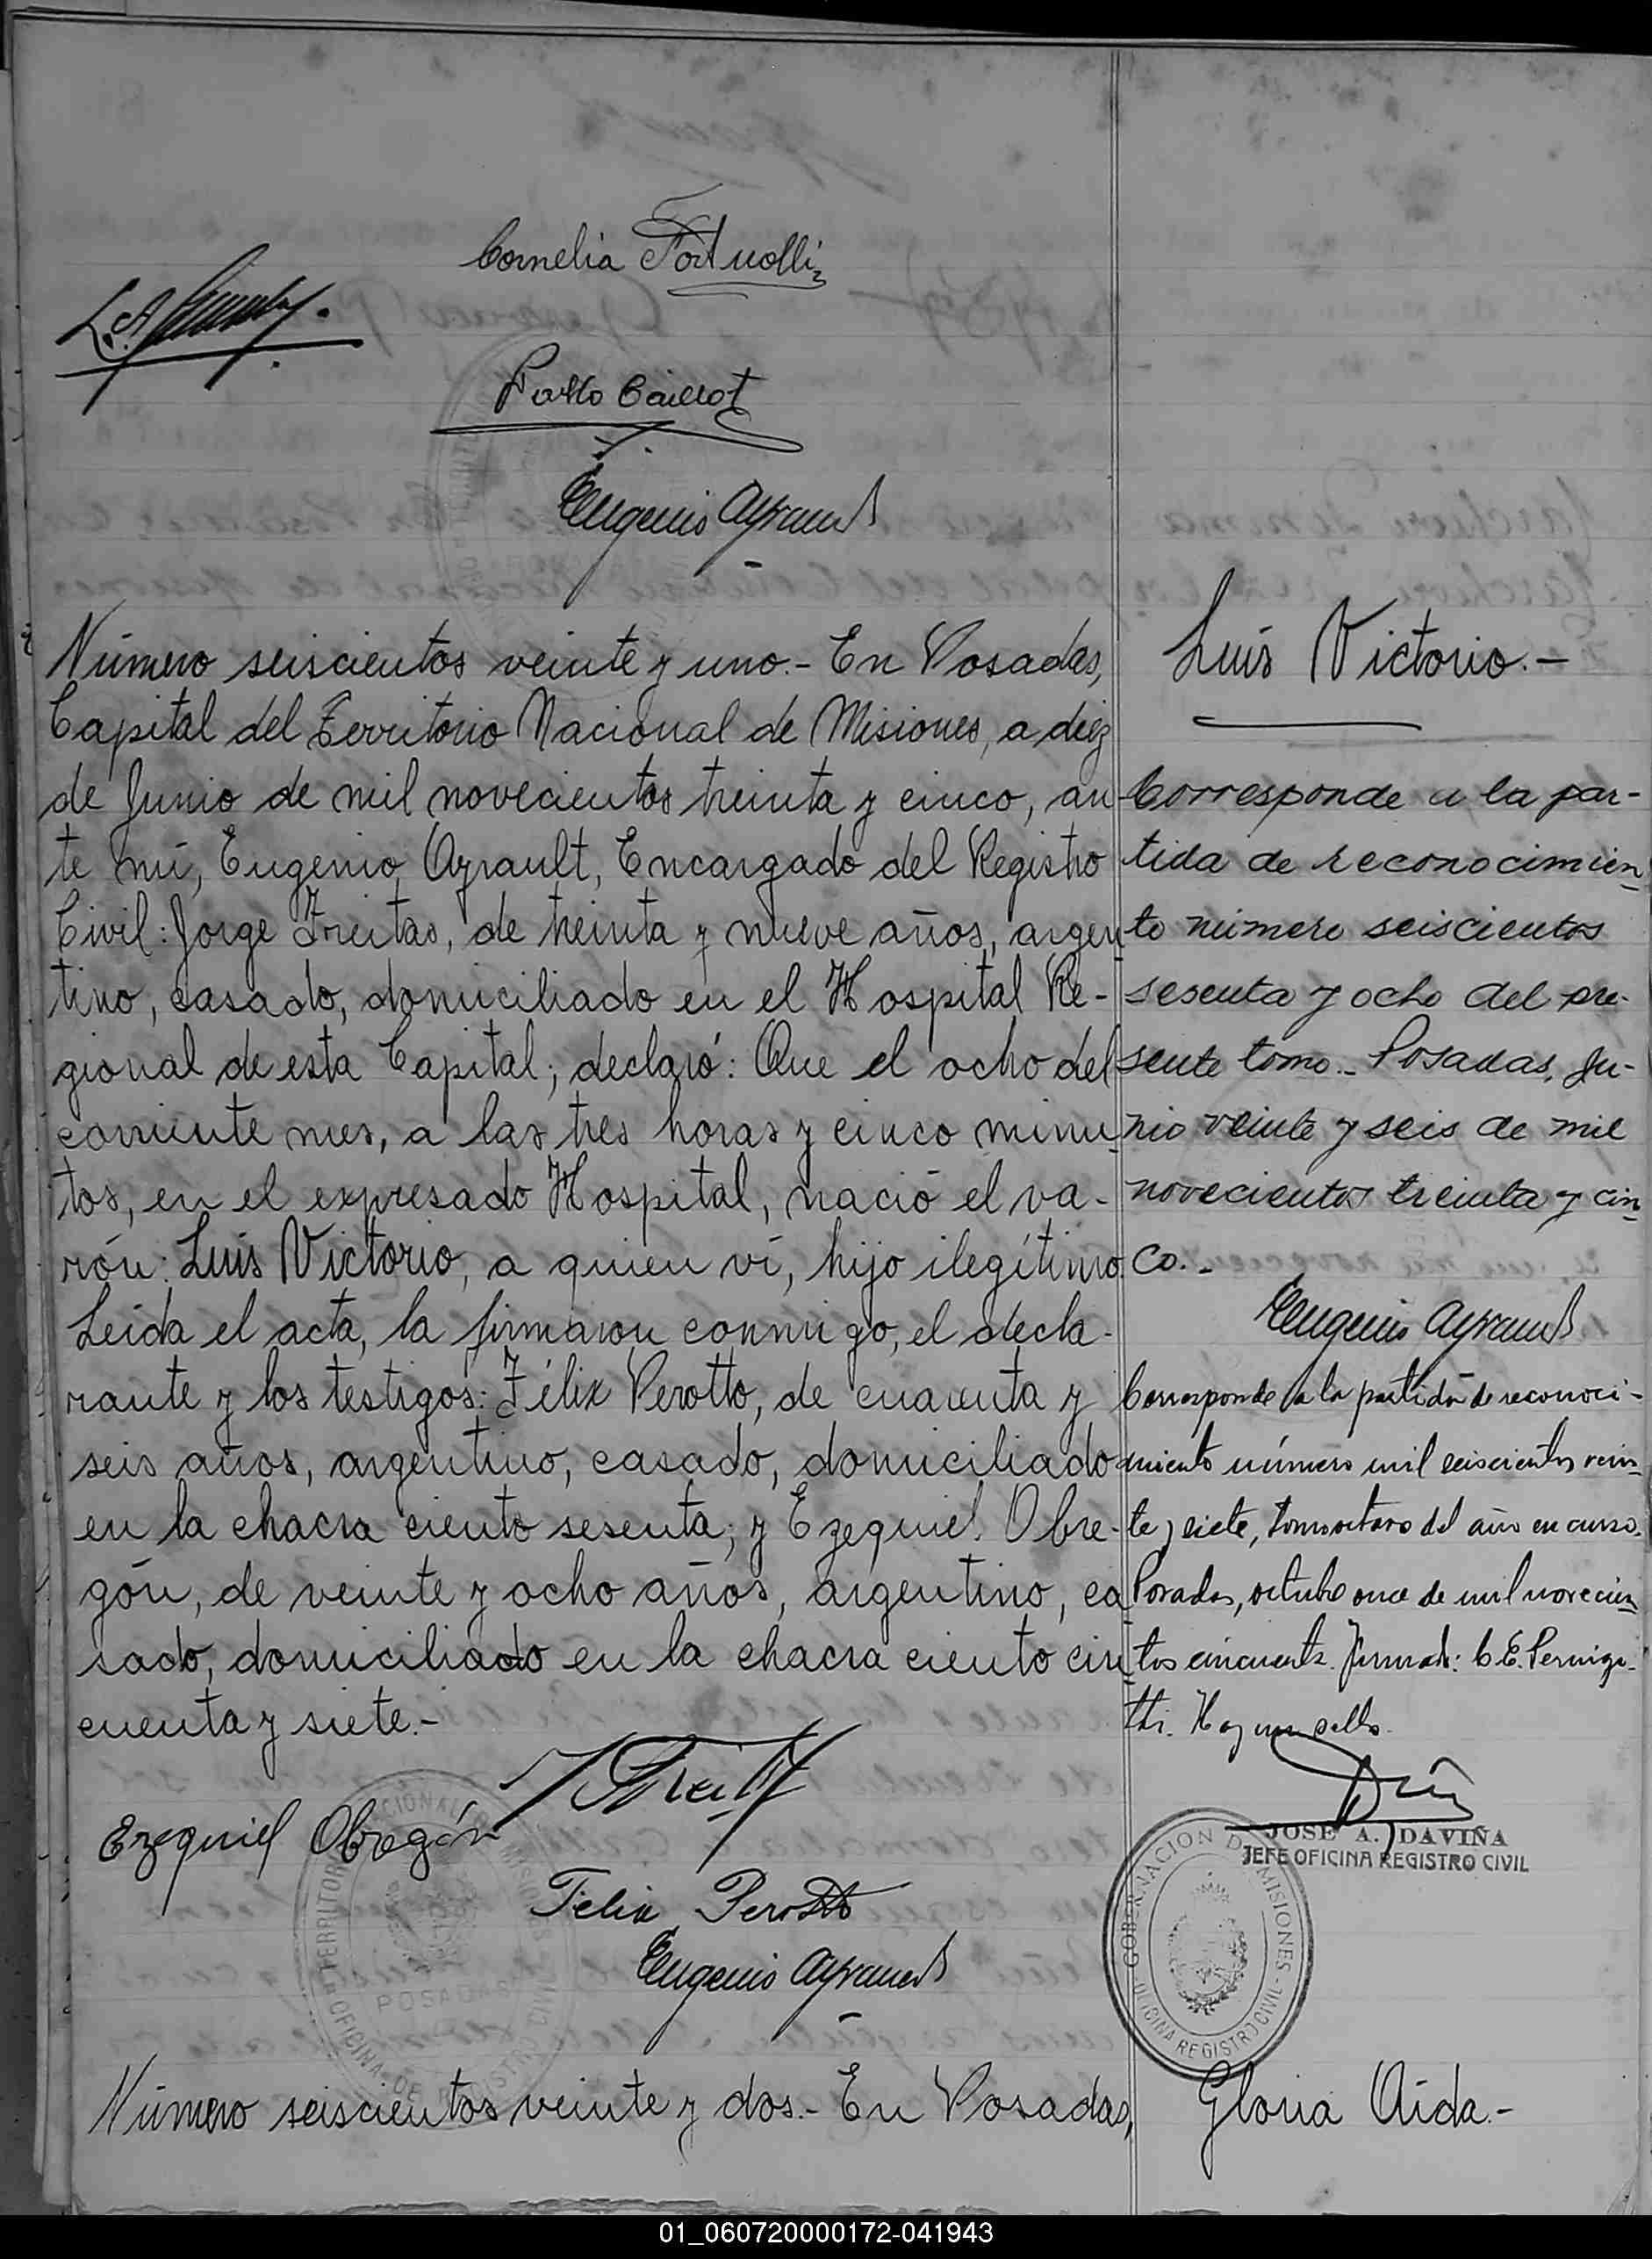 Cornelia Fortuolli
L. A.
Eugenio Ayrault
Número seiscientos veinte y uno.- En Posadas,
Capital del Territorio Nacional de Misiones, a diez
de Junio de mil novecientos treinta y cinco, an-
te mí, Eugenio Ayrault, Encargado del Registro
Civil: Jorge Freitas, de treinta y nueve años, argen-
tino, casado, domiciliado en el Hospital Re-
gional de esta Capital; declaró: Que el ocho del
corriente mes, a las tres horas y cinco minu-
tos, en el expresado Hospital, nació el va-
rón: Luis Victorio, a quien ví, hijo ilegítimo.
Leida el acta, la firmaron conmigo, el decla-
rante y los testigos: Félix Perotto, de cuarenta y
seis años, argentino, casado, domiciliado
en la chacra ciento sesenta; y Ezequiel Obre-
gón, de veinte y ocho años, argentino, ca-
sado, domiciliado en la chacra ciento cin-
cuenta y siete.-
J Freitas
Ezequiel Obregón
Felix Perotto
Eugenio Ayrault
TERRITORIO NACIONAL DE MISIONES
POSADAS
OFICINA DE REGISTRO CIVIL
Número seiscientos veinte y dos.- En Posadas,
Luis Victorio.-
Corresponde a la par-
tida de reconocimien-
to número seiscientos
sesenta y ocho del pre-
sente tomo.- Posadas, Ju-
nio veinte y seis de mil
novecientos treinta y cin-
co.-
Eugenio Ayrault
Corresponde a la partida de reconoci-
miento número mil seiscientos vein-
te y siete, tomo octavo del año en curso.
Posadas, octubre once de mil novecien-
tos cincuenta. Firmado: C. E. Pernigo-
tti. Hay un sello.
JOSE A. DAVIÑA
JEFE OFICINA REGISTRO CIVIL
GOBERNACION DE MISIONES
OFICINA REGISTRO CIVIL
Gloria Aida.-
01_060720000172-041943